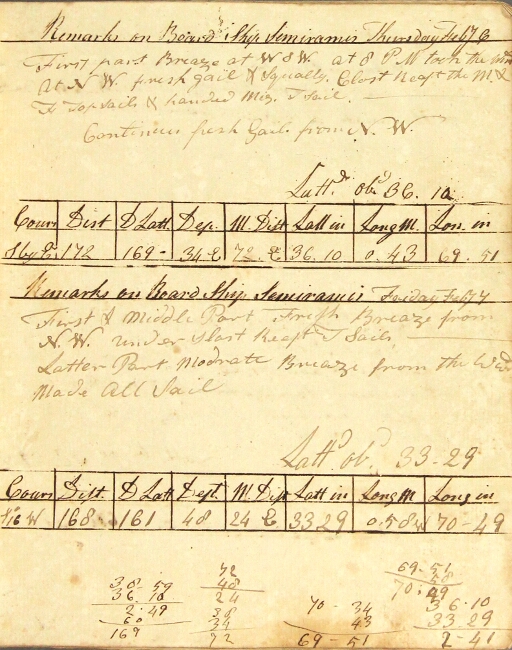 Remarks on Board Ship Semiramis Thursday Feb 7 6
First part Breaze at W S W. at 8 P M took the
at N W. fresh gail & Squally. Clost Reaft the M. &
F Topsails & handed Miz. T Sail.
Continues fresh Gail from N. W.
Latt.d ob.d 36. 10
Cours Dist D Latt. Dep. M. Dist Latt in Long M. Lon. in
S by E. 172 169- 34 E 72. E 36.10 0.43 69. 51
Remarks on Board Ship Semiramis Friday Feb 7 7
First & Middle Part Fresh Breaze from
N. W. under Clost Reaft T Sails
Latter Part Modrate Breaze from the
Made all Sail
Latt.d ob.d 33-29
Cours Dist. D Latt Dept. M. Dist Latt in Long M Long in
W 168 161 48 24 E 33 29 0.58 W 70-49
38 59
36. 10
2. 49
60
169
72
48
24
38
34
72
70 - 34
43
69 - 51
69. 51
58
70. 49
36.10
33.29
2-41